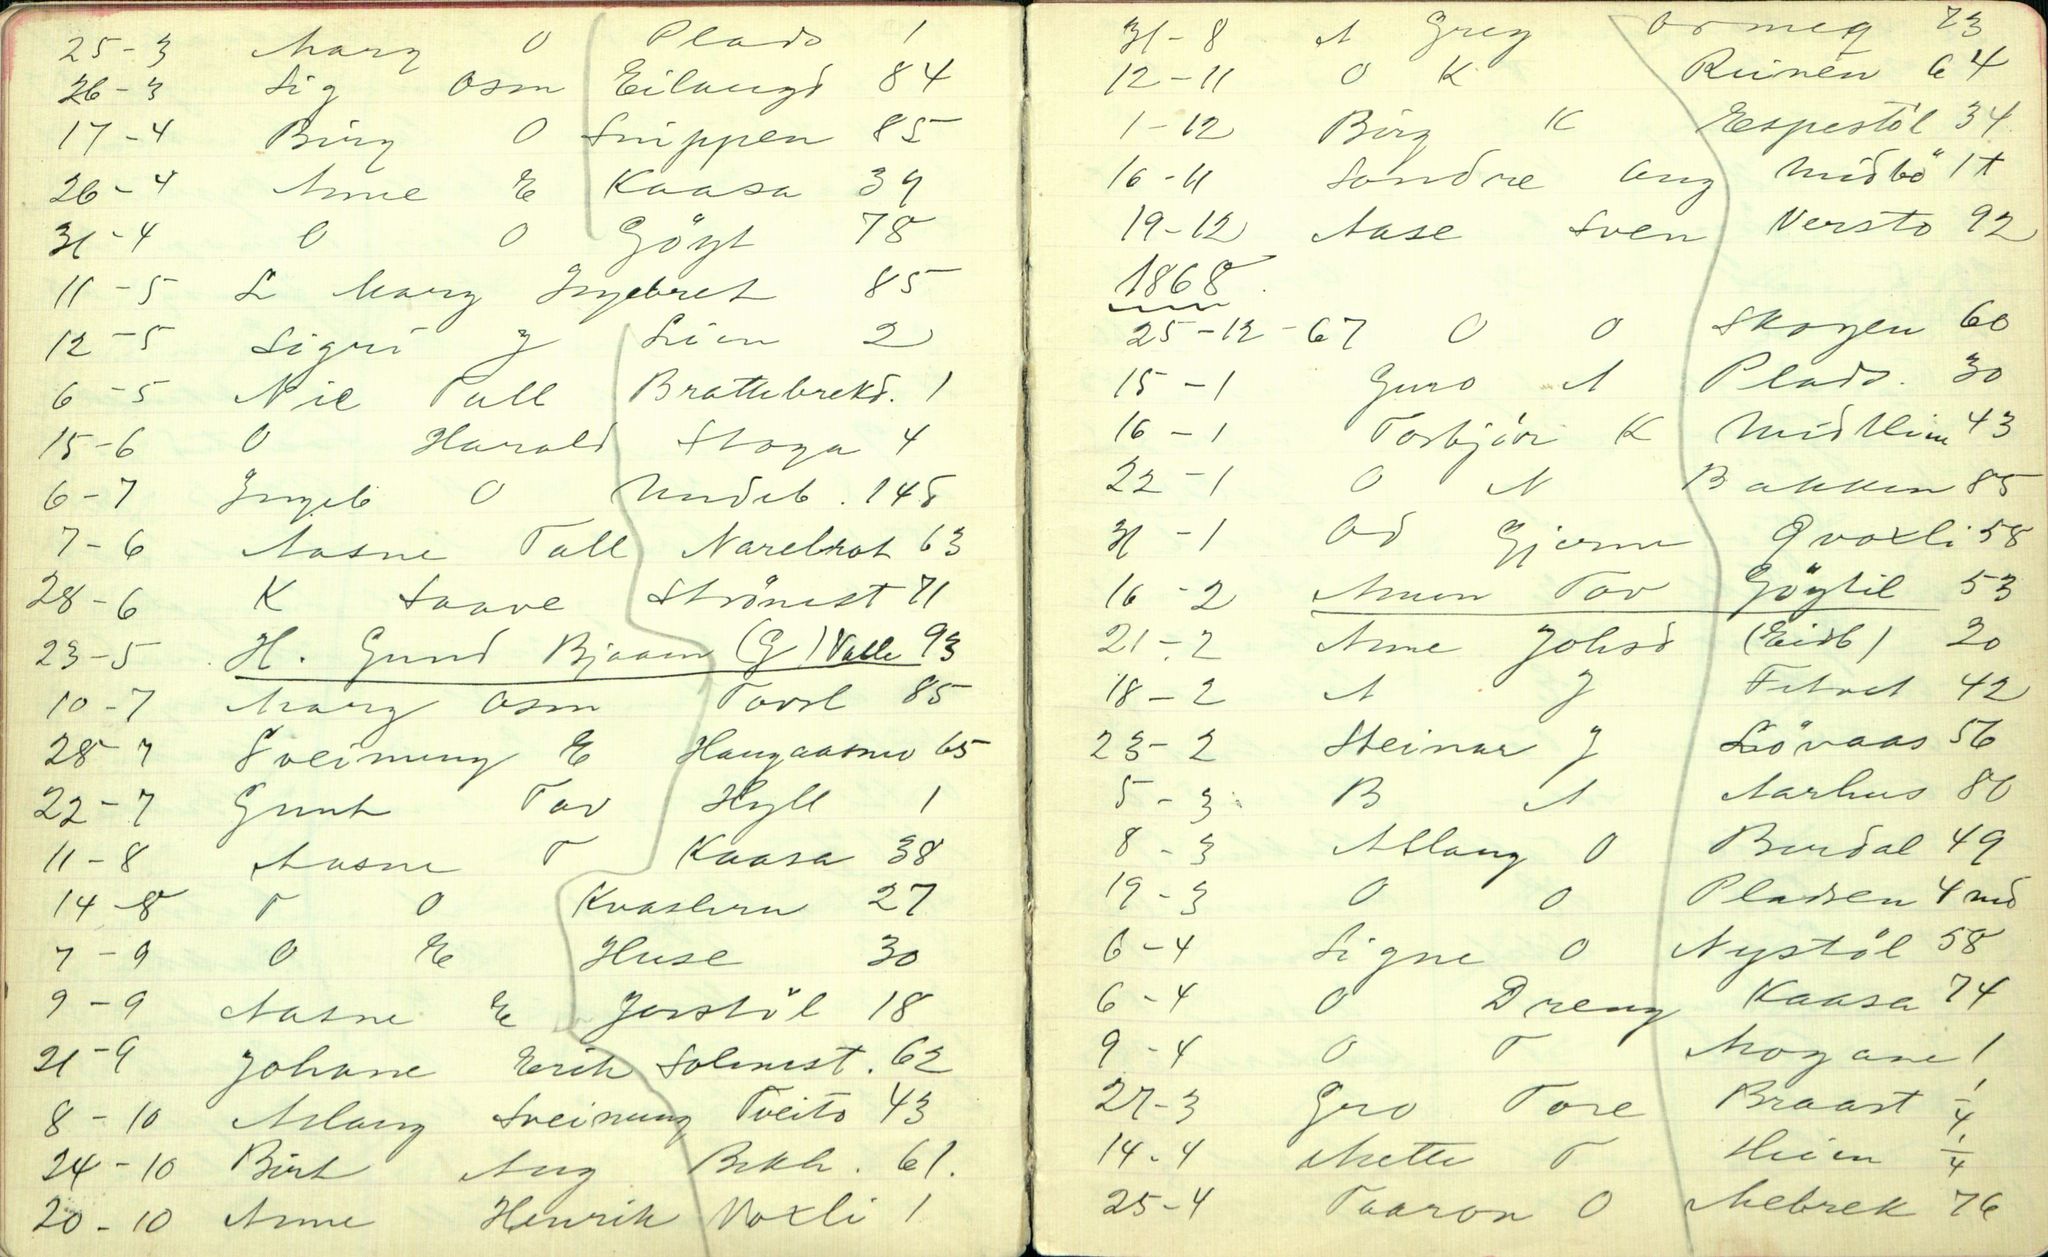 25-3 Marg O Plads 1
26-3 Sig Osm Eilaugd 84
17-4 Birg O Snippen 85
26-4 Anne E Kaasa 39
31-4 O O Göyt 78
11-5 L Marg Ingebret 85
12-5 Sigri J Lien 2
6-5 Nil Tall Brattebrekd. 1
15-6 O Harald Stoga 4
6-7 Ingeb O
7-6 Aasne Tall Narebrot 63
28-6 K Saave Strömest 71
23-5 H. Gund Bjaaen (G) Valle 93
10-7 Marg Osm Tovsl 85
28-7 Sveinung E Haugaasmo 65
22-7 Gunh Tov Hyll 1
11-8 Aasne T Kaasa 38
14-8 T O 27
7-9 O E Huse 30
9-9 Aasne E Jorstöl 18
21-9 Johane Erik Solmest. 62
8-10 Aslaug Sveinung Tveito 43
24-10 Birt Aug Bekh. 61.
20-10 Anne Henrik Voxli 1
31-8 A Greg 73
12-11 O K 64
1-12 Birg K Espestöl 34
16-11 Sondre Aug Midbö
19-12 Aase Sven Versto 92
1868
25-12-67 O O Skogen 60
15-1 Guro A Plads. 30
16-1 Torbjör K 43
22-1 O N Bakken 85
31-1 Od Gjerm Qvoxli 58
16-2 Tov Göytil 53
21-2 Anne Johsd (Eidb) 20
18-2 A J 42
23-2 Steinar J Lövaas 56
5-3 B A Aarhus 80
8-3 Aslaug O Burdal 49
19-3 O O Pladsen 4 md
6-4 Signe O Nystöl 58
6-4 O Dreng Kaasa 74
9-4 O T Mogane 1
27-3 Gro Tore Braast 1/4
14-4 Mette T 1/4
25-4 Taaron O Mebrek 76